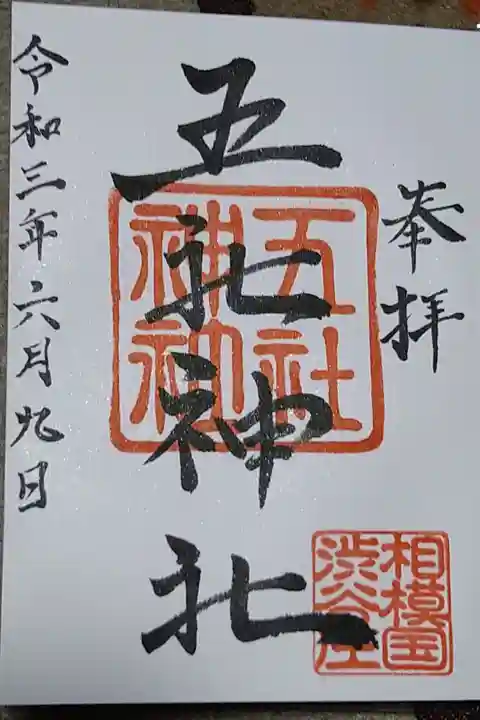 奉拝
五社神社
五社
神社
相模国
渋谷庄
令和三年六月九日